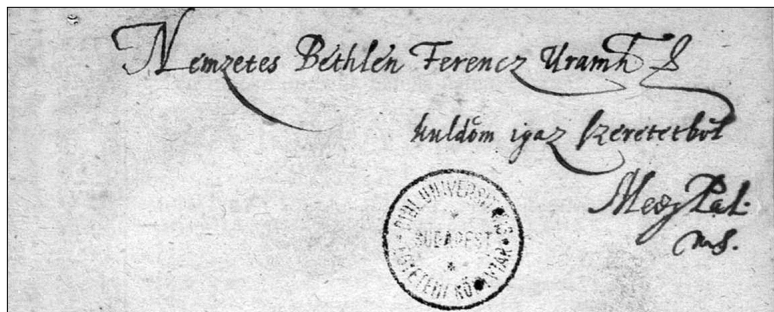 Nemzetes Bethlen Ferencz Uramh
kuldöm igaz szeretetböl
Medgy Pal.
ms.
BIBL. UNIVERSITATIS
BUDAPEST
EGYETEMI KÖNYVTÁR